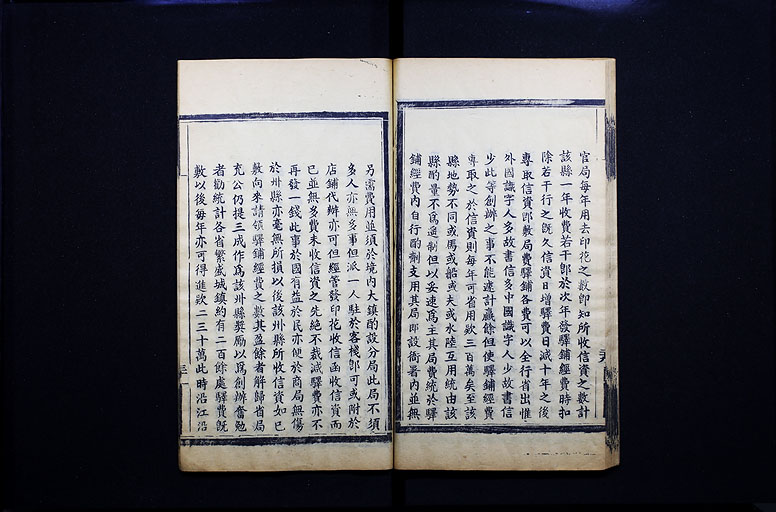 官局每年用去印花之數卽知所收信資之數計
該縣一年收費若干卽於次年發驛鋪經費時扣
除若干行之旣久信資日增驛費日減十年之後
專取信資卽敷局費驛鋪各費可以全行省出惟
外國識字人多故書信多中國識字人少故書信
少此等創辦之事不能遽計贏餘但使驛鋪經費
專取之於信資則每年可省用款三百萬矣至該
縣地勢不同或馬或船或夫或水陸互用統由該
縣酌量不爲遥制但以妥速爲主其局費統於驛
鋪經費內自行酌劑支用其局卽設衙署內並無
另需費用並須於境內大鎮酌設分局此局不須
多人亦無多事但派一人駐於客棧卽可或附於
店鋪代辦亦可但經管發印花收信函收信資而
已並無多費未收信資之先絕不裁減驛費亦不
再發一錢此事於國有益於民亦便於商局無傷
於州縣亦毫無所損以後該州縣所收信資如已
敷向來請領驛鋪經費之數其盈餘者解歸省局
充公仍提三成作爲該州縣獎勵以爲創辦奮勉
者勸統計各省繁盛城鎮約有二百餘處驛費旣
敷以後每年亦可得進款二三十萬此時沿江沿